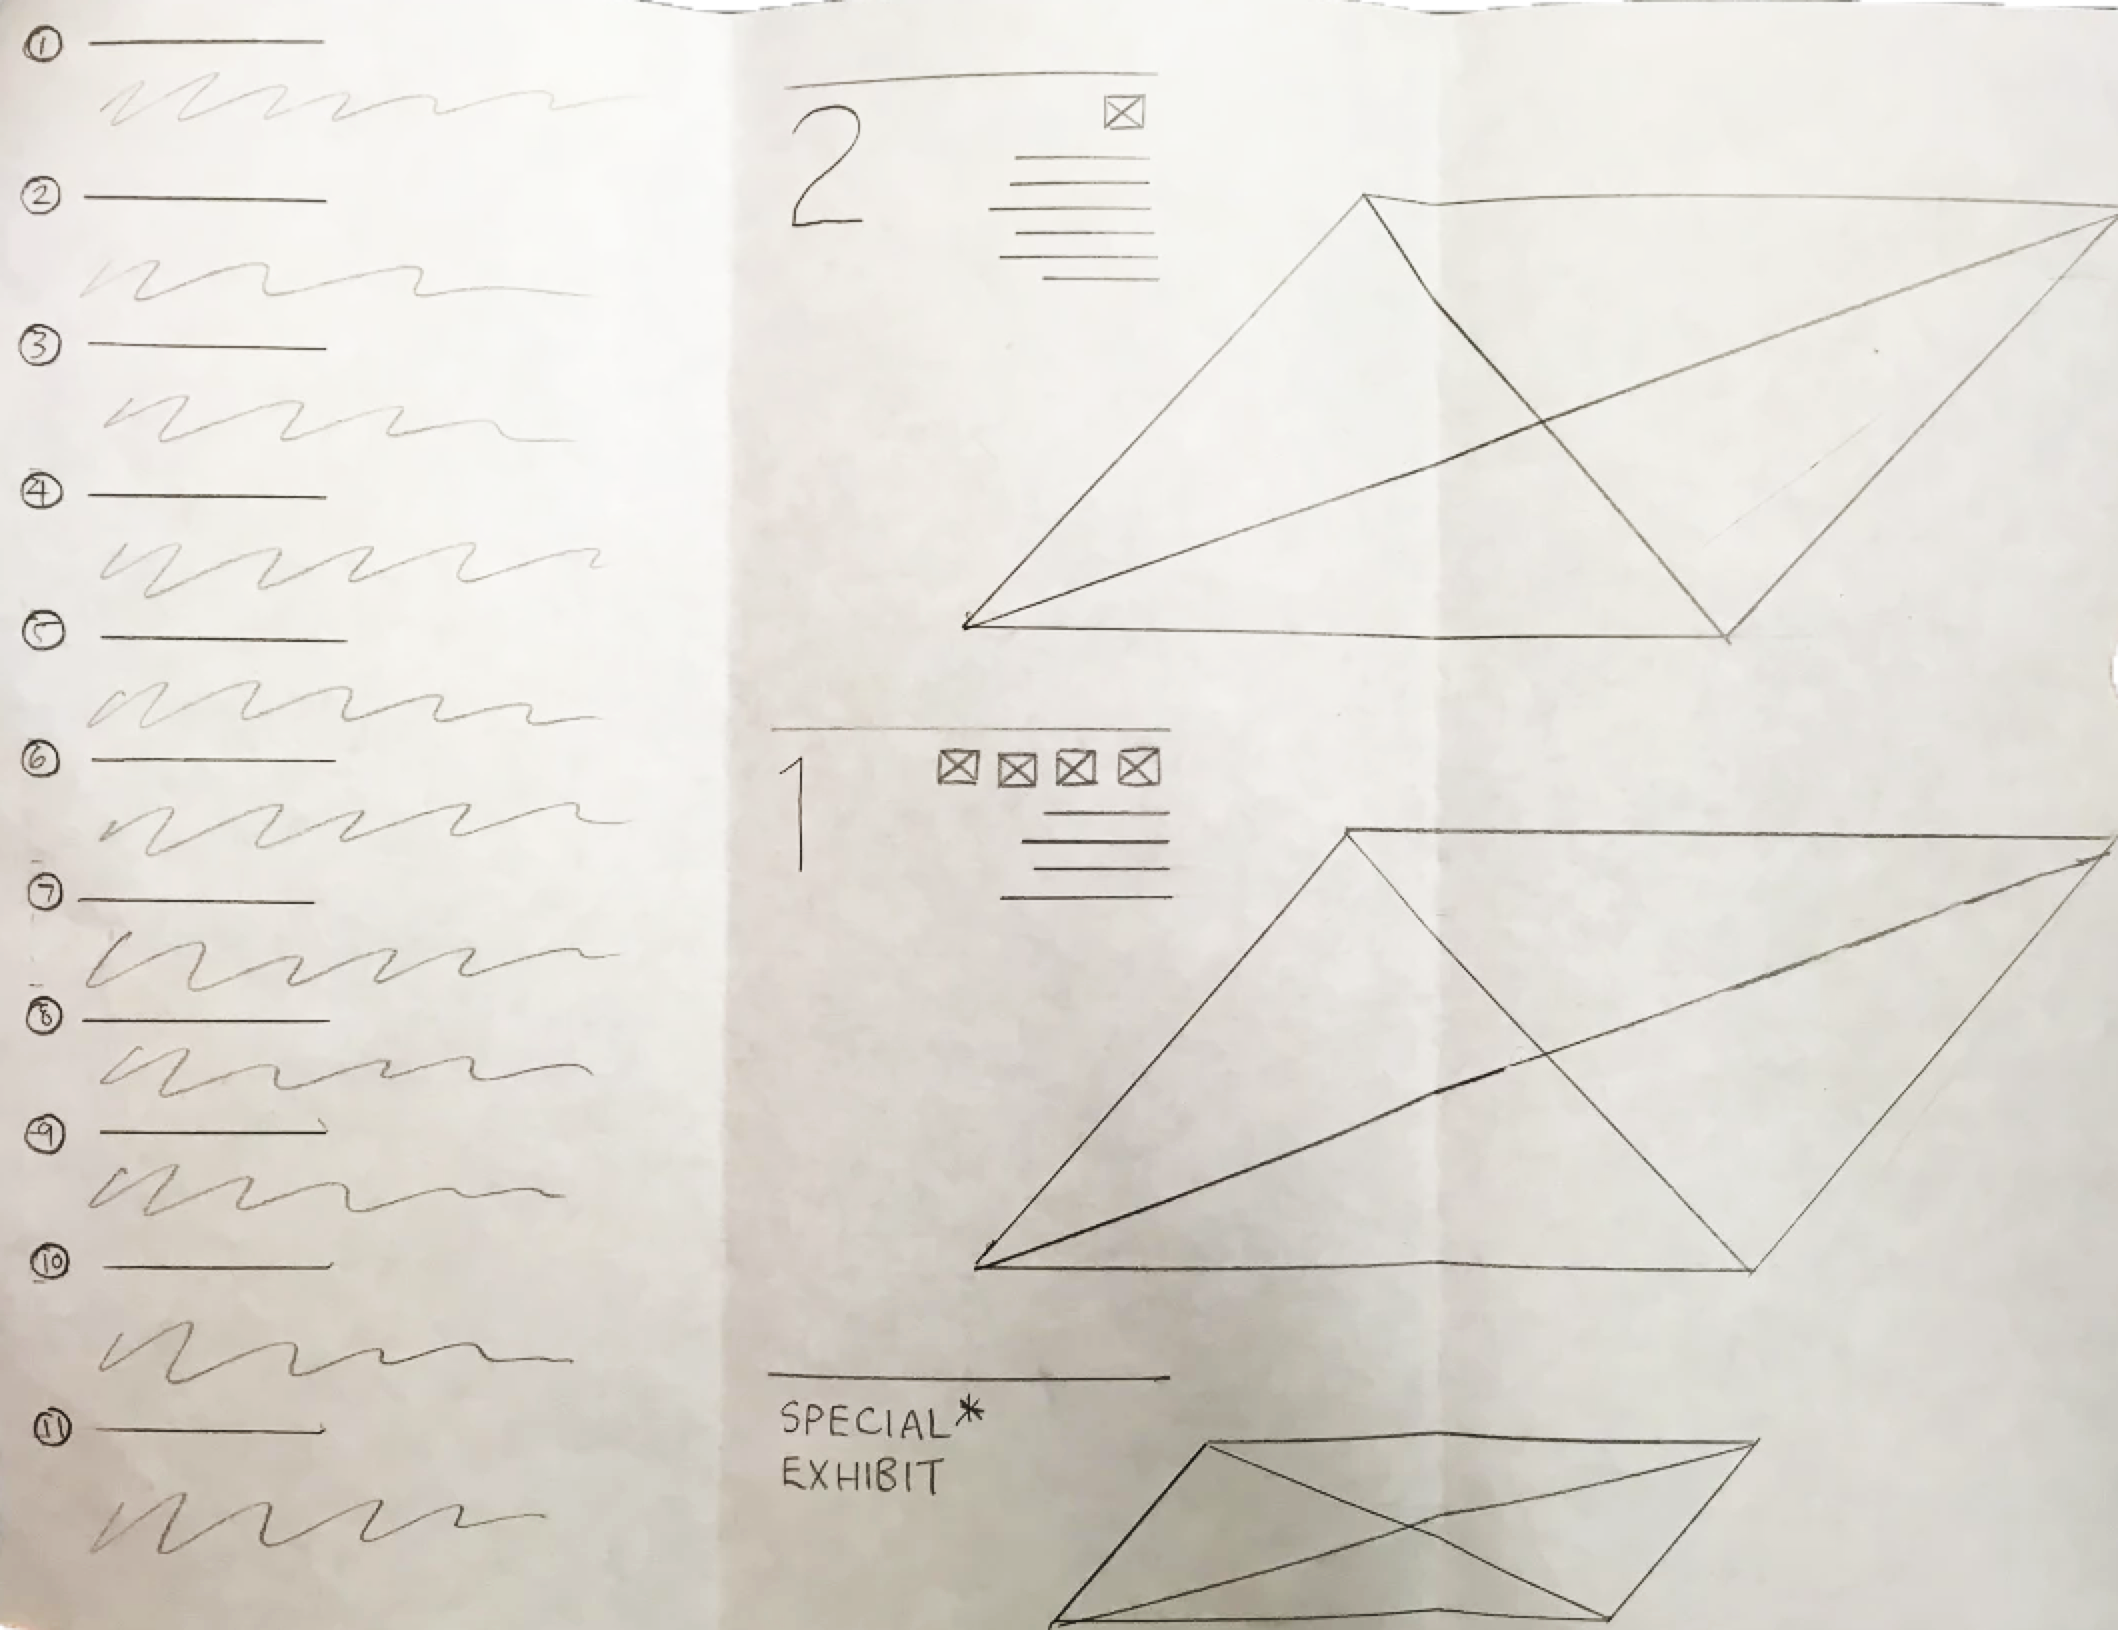 1
2
3
4
5
6
7
8
9
10
11
2
1
SPECIAL*
EXHIBIT